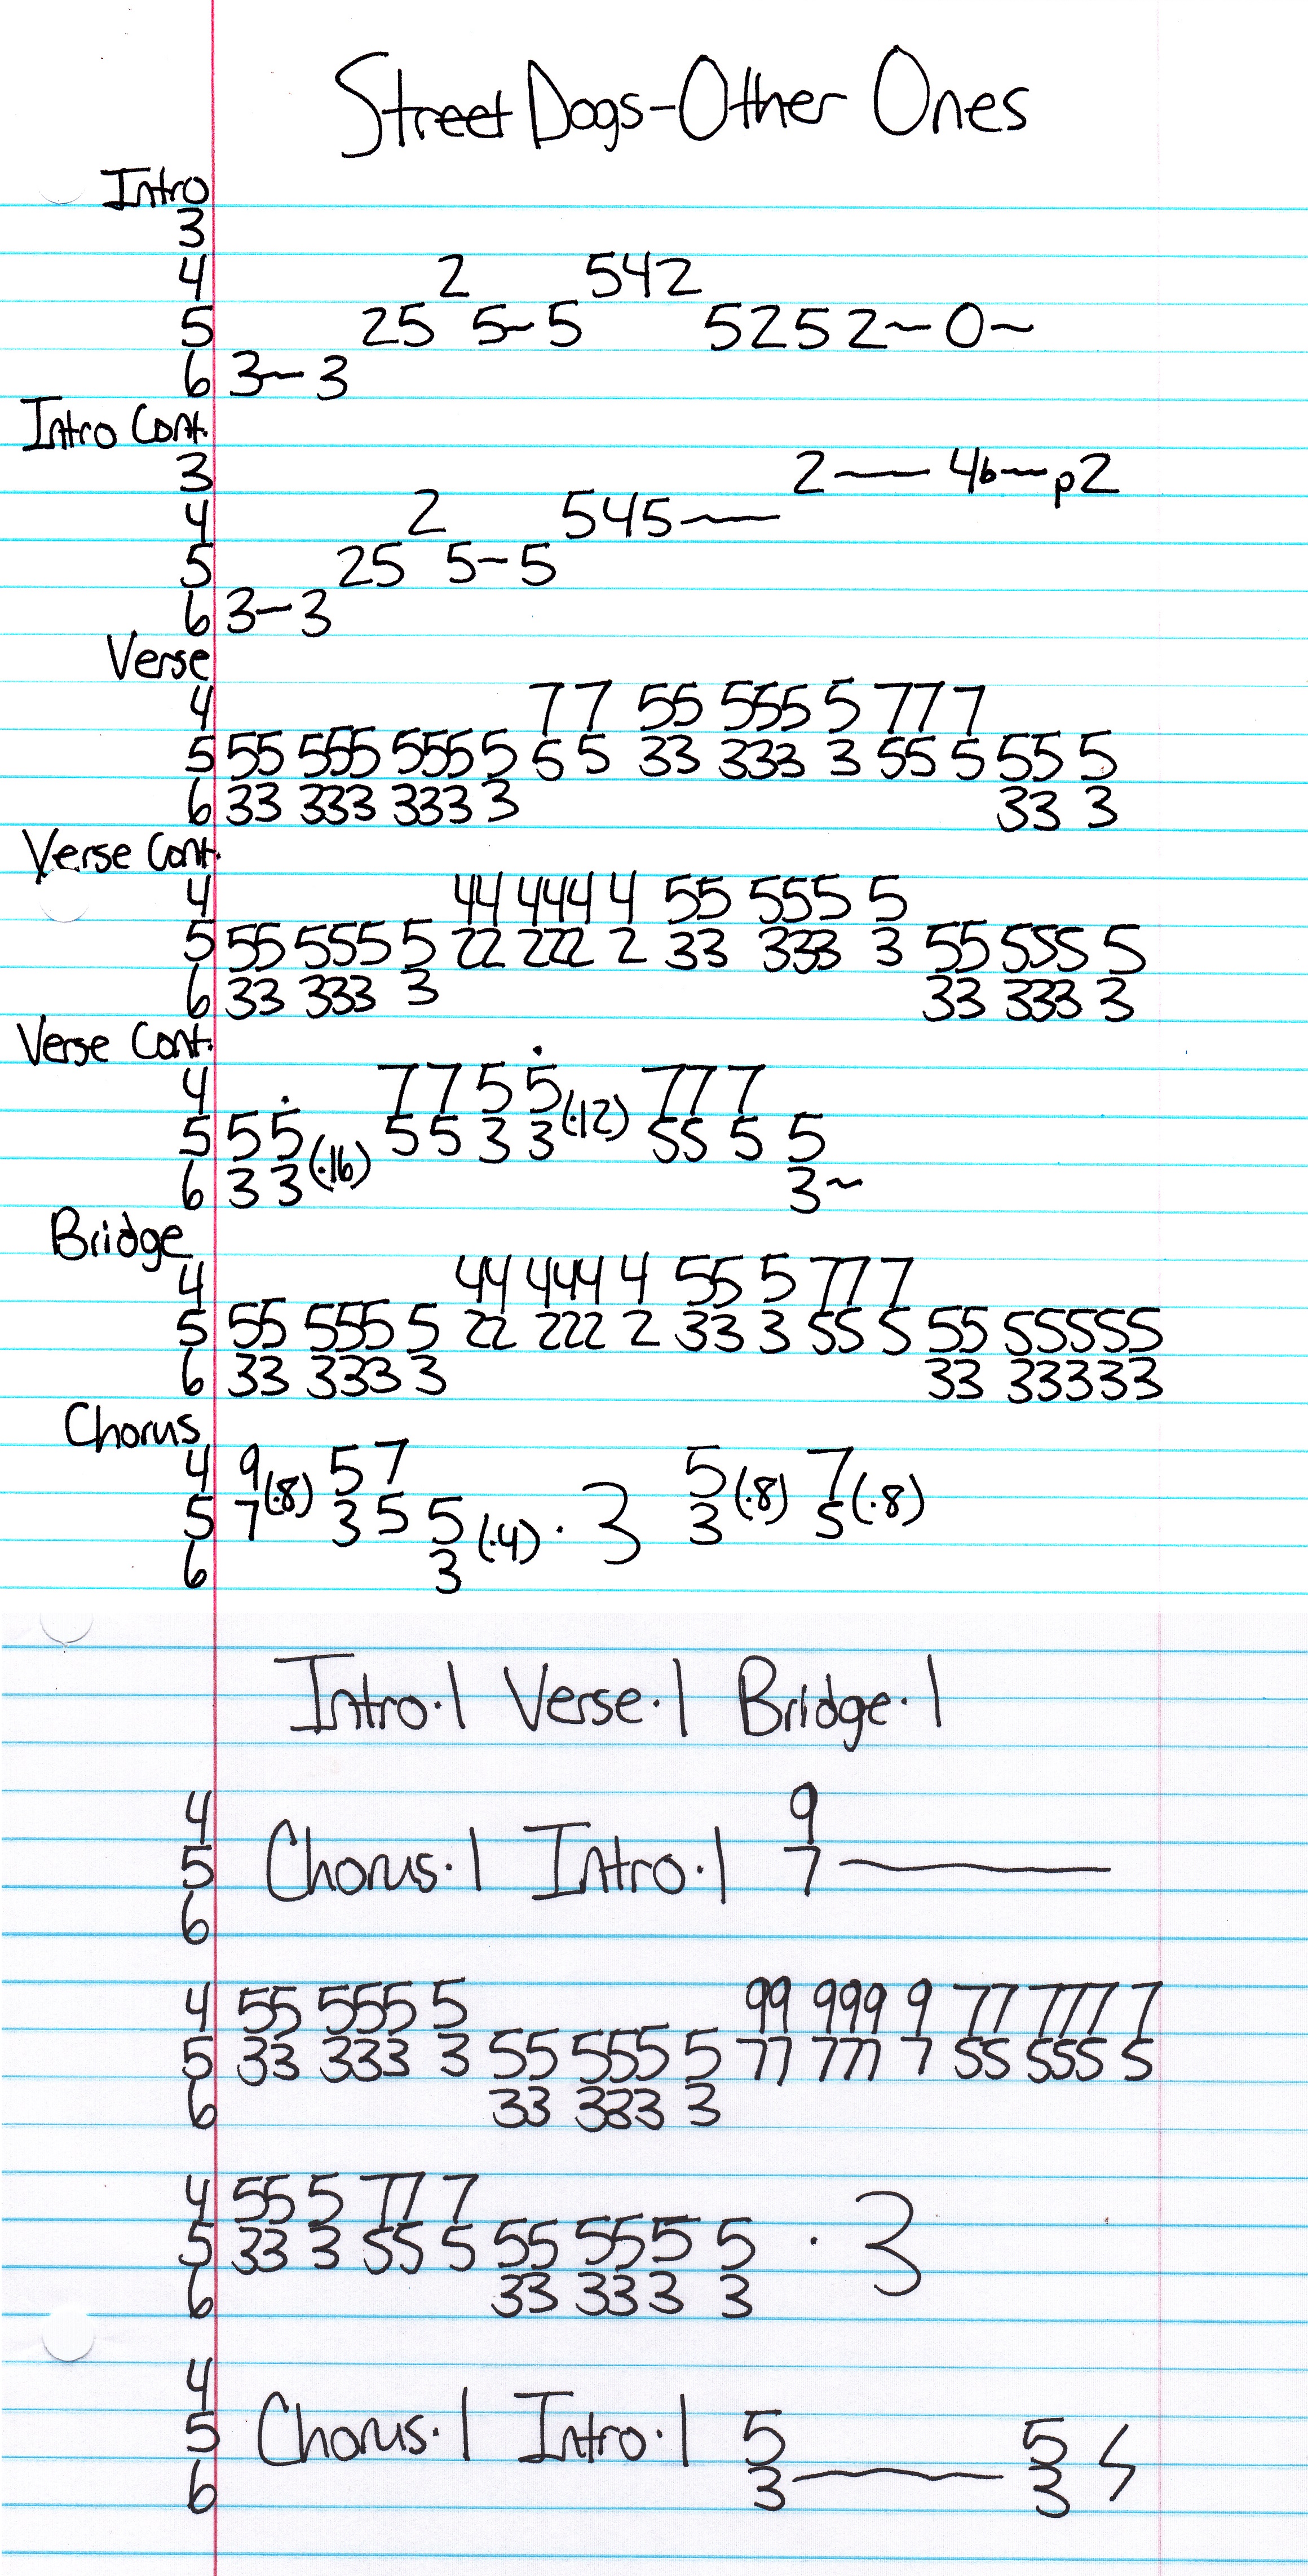 Street Dogs-Other Ones
Intro
3
4 2 542
5 25 5~5 5252~0~
6 3~3
Intro Cont.
3 2— 4b~p2
4 2 545—
5 25 5~5
6 3~3
Verse
4 77 55 555 5 777
5 55 555 555 5 5 5 33 333 3 55 5 55 5
6 33 333 333 3 33 3
Verse Cont.
4 44 444 4 55 555 5
5 55 555 5 22 222 2 33 333 3 55 555 5
6 33 333 3 33 333 3
Verse Cont.
4 7 7 5 5 (·12) 77 7
5 5 5 (·16) 5 5 3 3 55 5 5
6 3 3 3~
Bridge
4 44 444 4 55 5 77 7
5 55 555 5 22 222 2 33 3 55 5 55 55555
6 33 333 3 33 33333
Chorus
4 9 (·8) 5 7 5 (·8) 7 (·8)
5 7 3 5 5 (·4) · 3 3 5
6 3
Intro·1 Verse·1 Bridge·1
4 9
5 Chorus·1 Intro·1 7—
6
4 55 555 5 99 999 9 77 777 7
5 33 333 3 55 555 5 77 777 7 55 555 5
6 33 333 3
4 55 5 77 7
5 33 3 55 5 55 55 5 5 · 3
6 33 33 3 3
4
5 Chorus·1 Intro·1 5 5
6 3— 3